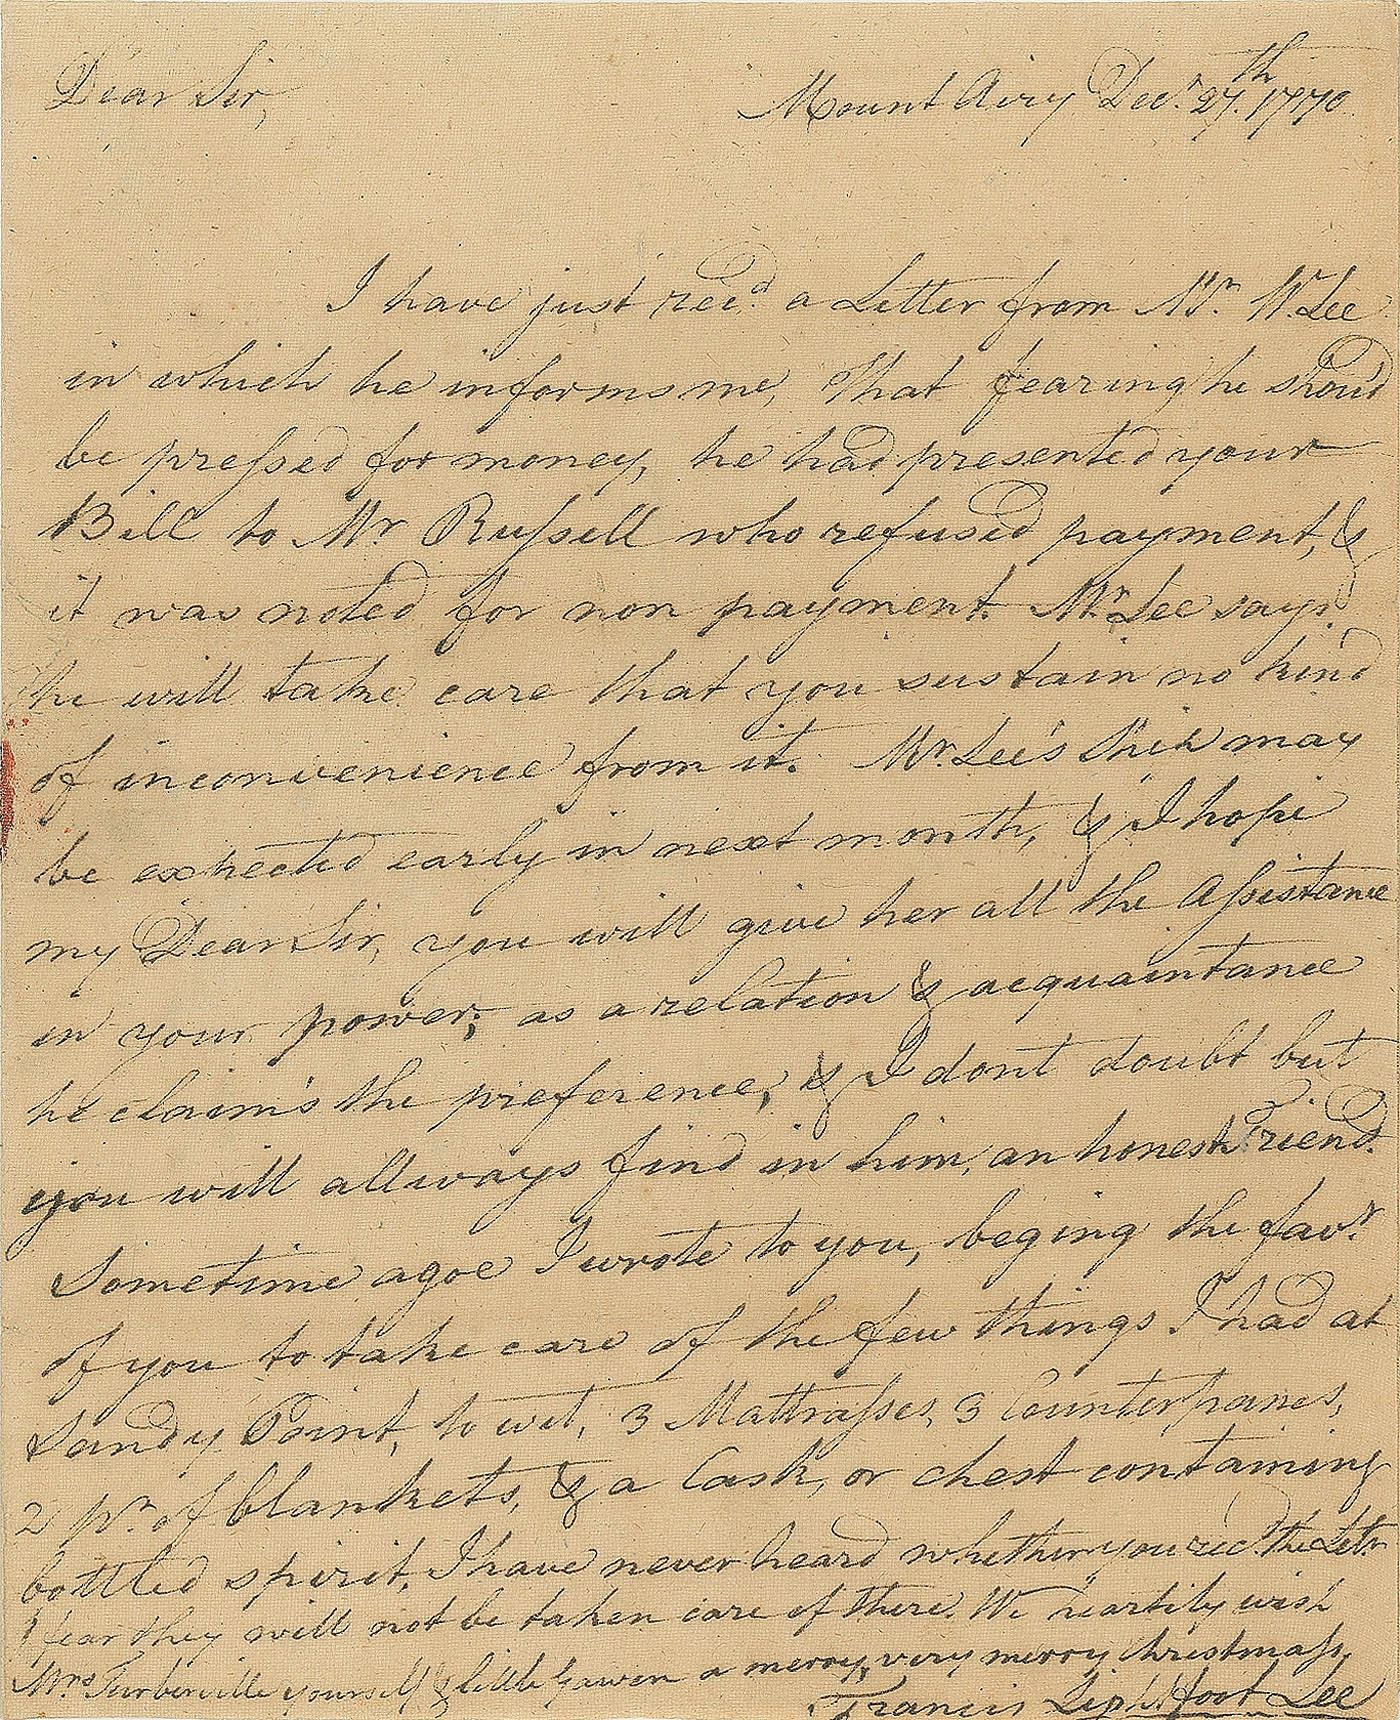 Dear Sir,
Mount Airy Decr. 27th. 1770.
I have just recd. a Letter from Mr. W. Lee
in which he informs me, that fearing he shoud
be preſsed for money, he had presented your
Bill to Mr Ruſsell who refused payment, &
it was noted for non payment. Mr. Lee says.
he will take care that you sustain no kind
of inconvenience from it. Mr. Lee's Ship may
be expected early in next month, & I hope
my Dear Sir, you will give her all the Aſsistance
in your power; as a relation & acquaintance
he claim's the preference, & I dont doubt but
you will allways find in him, an honest Friend.
Sometime agoe I wrote to you, beging the favr.
of you to take care of the few things I had at
Sandy Point, to wit, 3 Mattraſses, 3 Counterpanes,
2 pr. of blankets, & a Cask, or chest containing
bottled spirit. I have never heard whether you recd the Letr.
I fear they will not be taken care of there. We heartily wish
Mrs Turberville yourself & little Gawen a merry, very merry Christmaſs,
Francis Lightfoot Lee